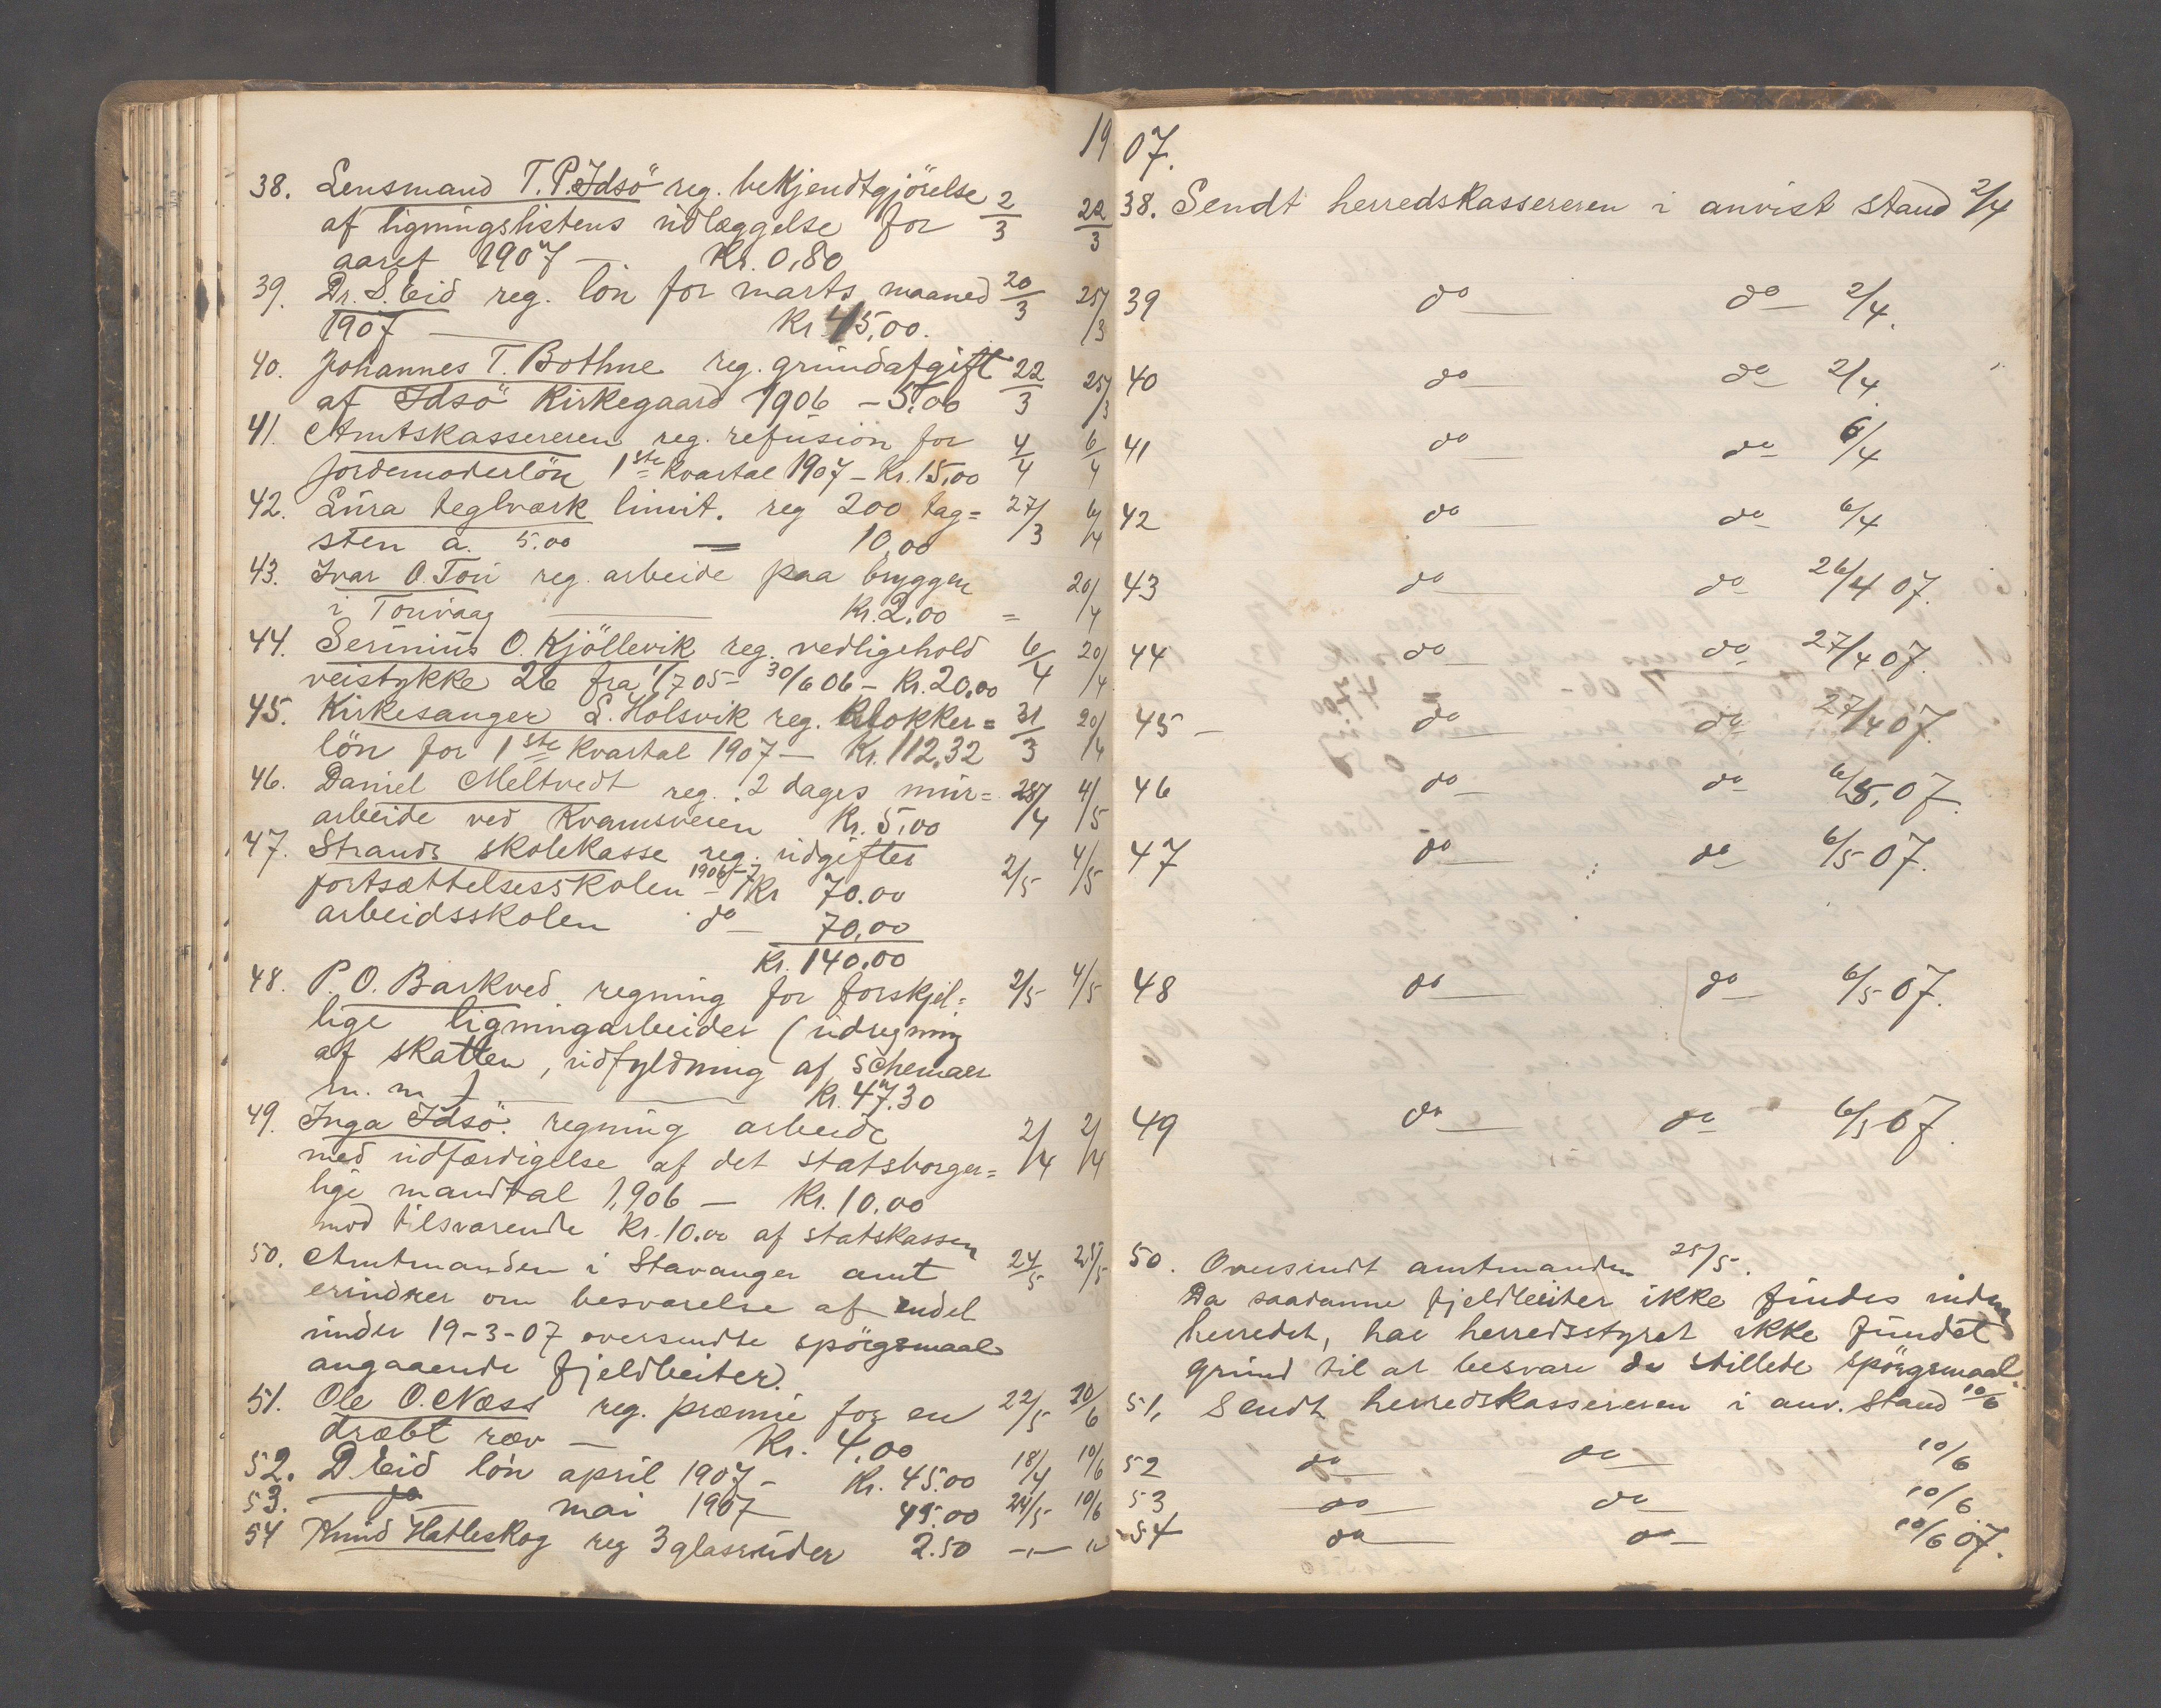 1907.
38. Lensmand T. P. Idsö reg. bekjendtgjörelse 2/3 22/3
af ligningslistens udlæggelse for
aaret 1907 — Kr. 0,80
39. Dr. S. Eid reg. lön for marts maaned 20/3 25/3
1907 — Kr. 45,00.
40. Johannes T. Bothne reg. grundafgift 22/3 25/3
af Idsö Kirkegaard 1906 – 5,00
41. Amtskassereren reg. refusion for 4/4 6/4
jordemoderlön 1ste kvartal 1907 – Kr. 15,00
42. Lura teglværk limit. reg 200 tag= 27/3 6/4
sten a. 5.00 — 10,00
43. Ivar O. Tou reg. arbeide paa bryggen 20/4
i Touvaag — Kr. 2,00 =
44. Serinius O. Kjöllevik reg. vedligehold 6/4 20/4
veistykke 26 fra 1/7 05 – 30/6 06 – Kr. 20,00
45. Kirkesanger L. Holsvik reg. Klokker= 31/3 20/4
lön for 1ste Kvartal 1907 — Kr. 112,32
46. Daniel Meltvedt reg. 2 dages mur= 28/4 4/5
arbeide ved Kvamsveien Kr. 5,00
47. Strands skolekasse reg. udgifter 2/5 4/5
fortsættelsesskolen 1906–7 Kr 70.00
arbeidsskolen do — 70,00
Kr. 140,00
48. P. O. Barkved regning for forskjel= 2/5 4/5
lige ligningarbeider (udregning
af skatten, udfyldning af schemaer
m. m.) — Kr. 47.30
49. Inga Idsö. regning arbeide 2/4 2/4
med udfærdigelse af det statsborger=
lige mandtal 1906 — Kr. 10.00
mod tilsvarende Kr. 10.00 af statskassen
50. Amtmanden i Stavanger amt 24/5 25/5
erindrer om besvarelse af endel
under 19-3-07 oversendte spörgsmaal
angaaende fjeldbeiter.
51. Ole O. Næss reg. præmie for en 22/5 10/6
dræbt ræv — Kr. 4,00
52. D Eid lön april 1907 – Kr. 45.00 18/4 10/6
53. do mai 1907 45.00 24/5 10/6
54 Knud Hatleskog reg 3 glasruder 2.50 —„— „
38. Sendt herredskassereren i anvist stand 2/4
39 do — do — 2/4.
40 do — do — 2/4.
41 do — do — 6/4
42 do — do — 6/4
43 do — do — 26/4 07.
44 do — do — 27/4 07.
45 – do — do — 27/4 07.
46 do — do — 6/5. 07.
47 do — do — 6/5 07.
48 do — do — 6/5 07.
49 do — do — 6/5 07.
50. Oversendt amtmanden 25/5.
Da saadanne fjeldbeiter ikke findes inden
herredet, har herredsstyret ikke fundet
grund til at besvare de stillede spörgsmaal.
51. Sendt herredskassereren i anv. stand 10/6
52 do — do — 10/6
53 do — do — 10/6.
54 do — do — 10/6 07.